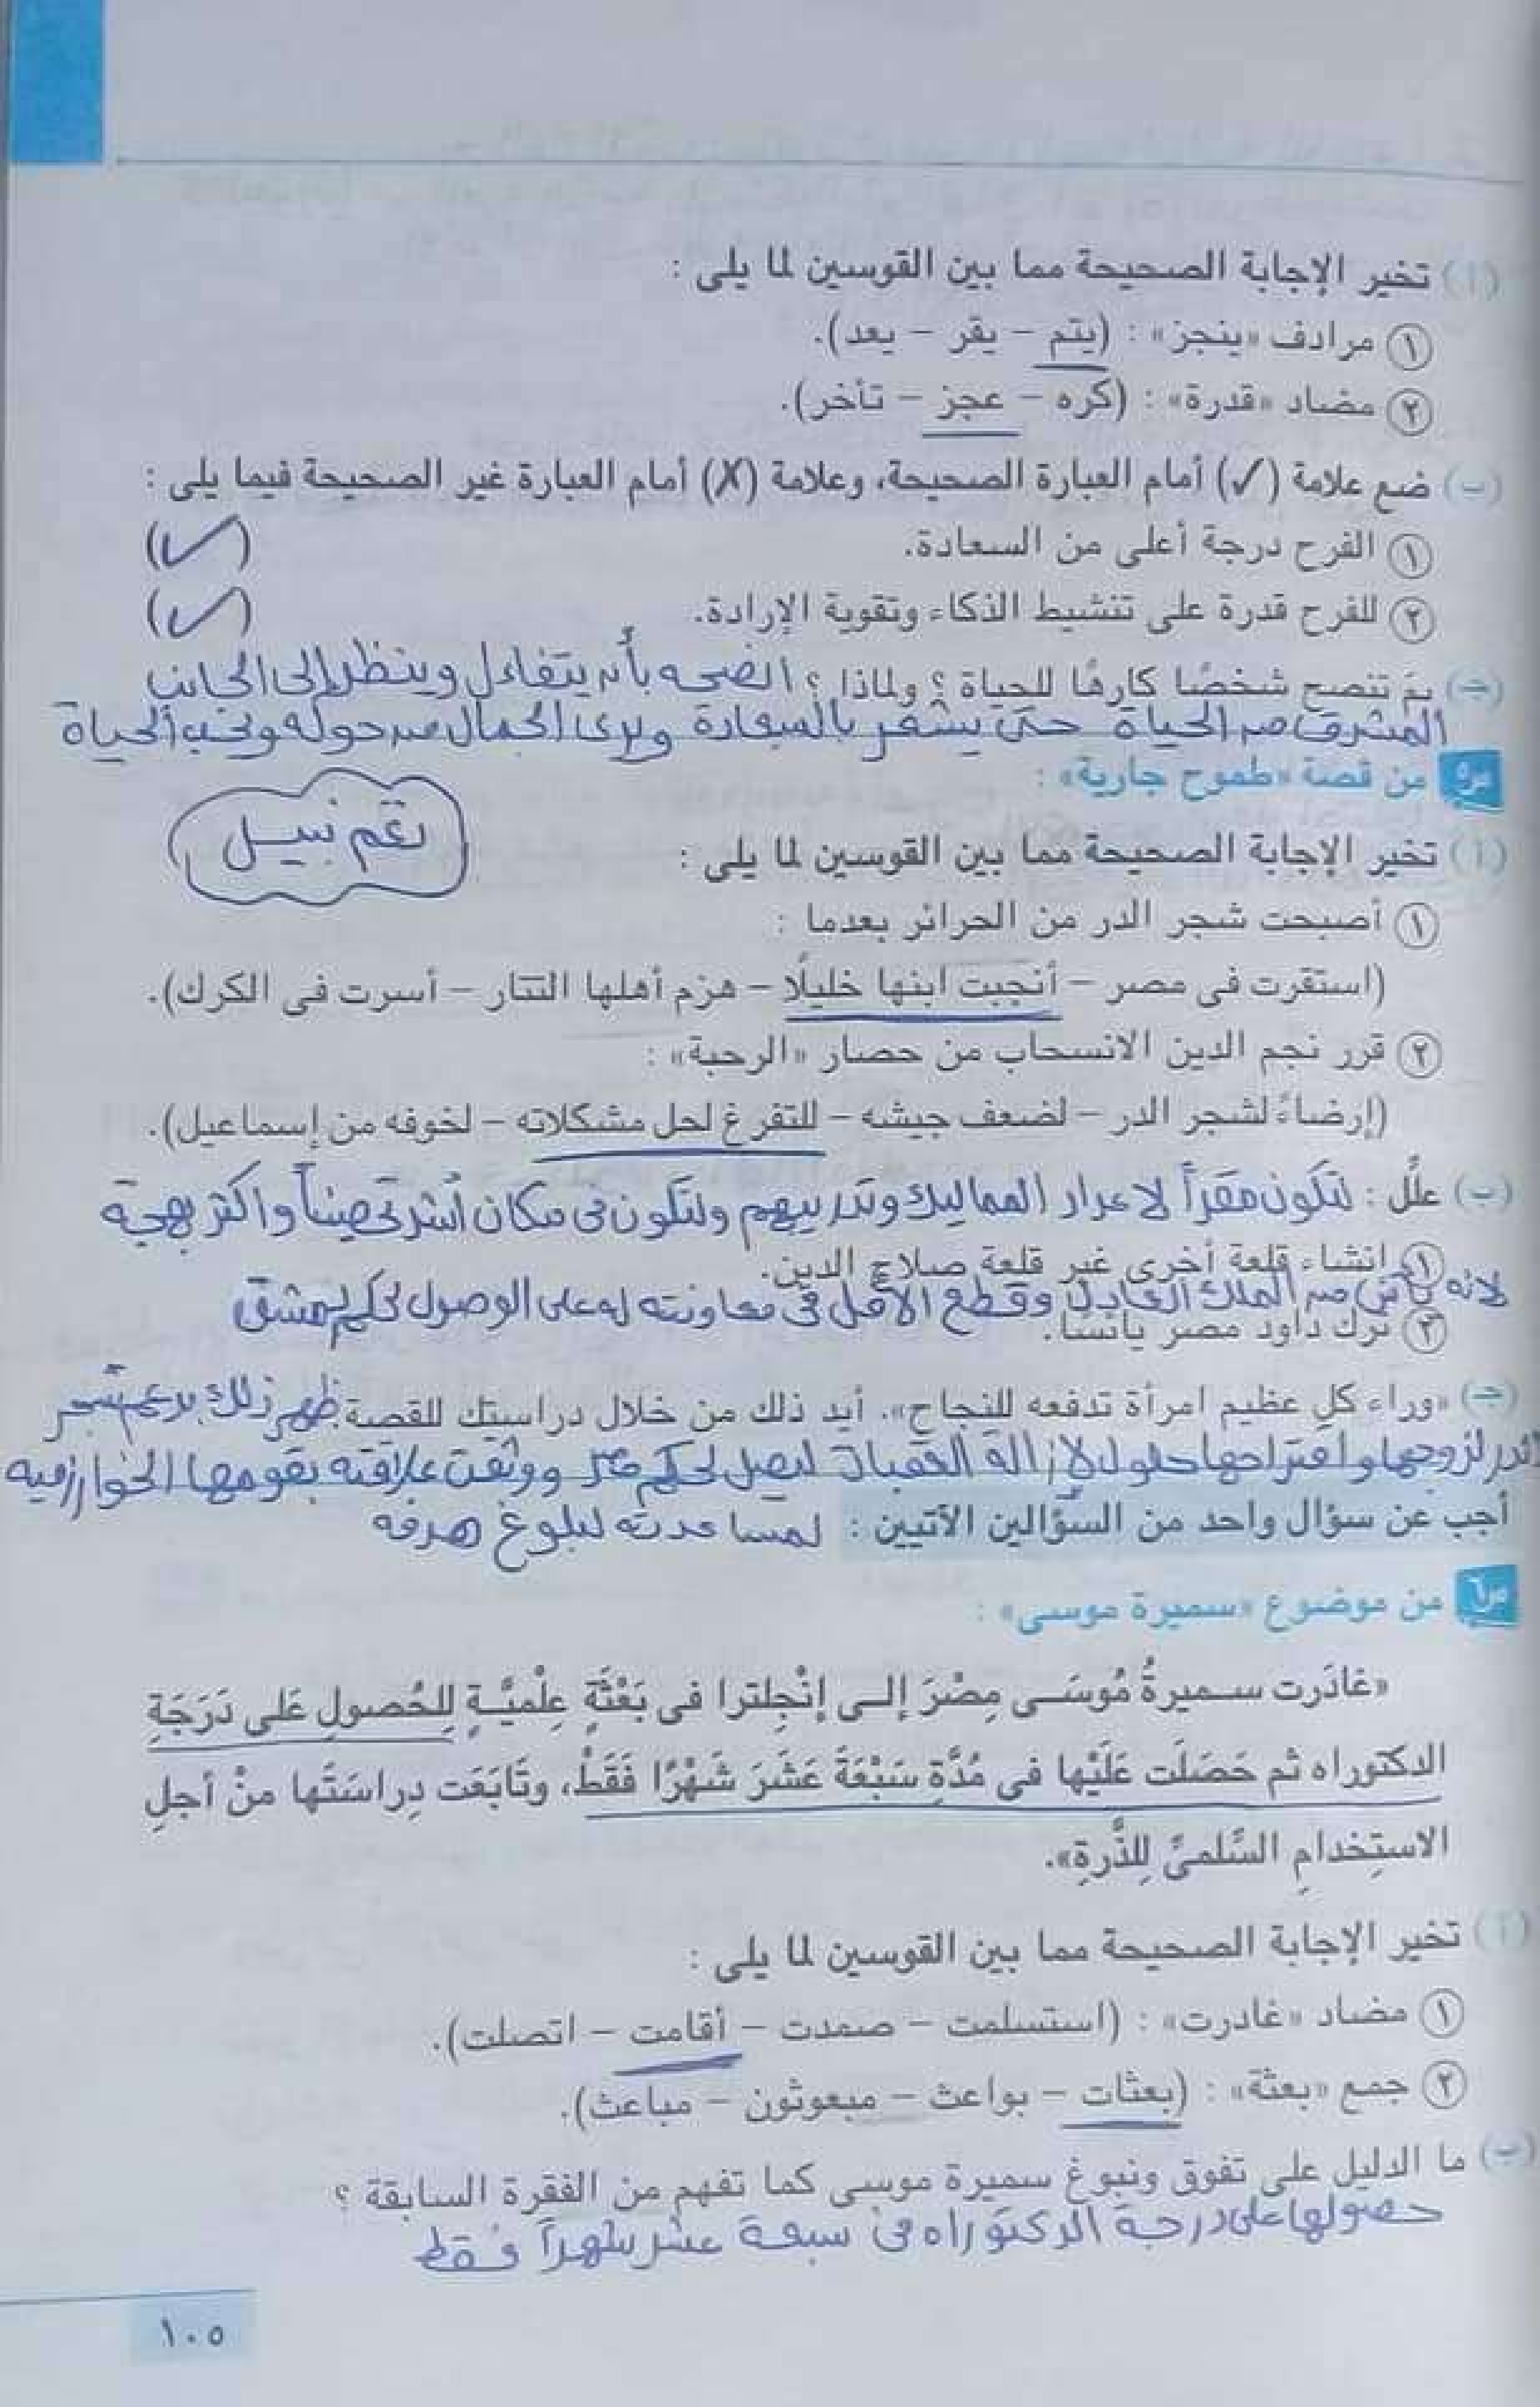 (أ) تخير الإجابة الصحيحة مما بين القوسين لما يلى :
١ مرادف «ينجز» : (يتم – يقر – يعد).
٢ مضاد «قدرة» : (كره – عجز – تأخر).
(ب) ضع علامة (✓) أمام العبارة الصحيحة، وعلامة (X) أمام العبارة غير الصحيحة فيما يلى :
١ الفرح درجة أعلى من السعادة. (✓)
٢ للفرح قدرة على تنشيط الذكاء وتقوية الإرادة. (✓)
(جـ) بم تنصح شخصًا كارهًا للحياة ؟ ولماذا ؟ انصحه بأن يتفاءل وينظر إلى الجانب
المشرق من الحياة حتى يشعر بالسعادة ويرى الجمال من حوله ويحب الحياة
س٥ من قصة «طموح جارية» :
نغم نبيل
(أ) تخير الإجابة الصحيحة مما بين القوسين لما يلى :
١ أصبحت شجر الدر من الحرائر بعدما :
(استقرت فى مصر – أنجبت ابنها خليلًا – هزم أهلها التتار – أسرت فى الكرك).
٢ قرر نجم الدين الانسحاب من حصار «الرحبة» :
(إرضاءً لشجر الدر – لضعف جيشه – للتفرغ لحل مشكلاته – لخوفه من إسماعيل).
(ب) علل : لتكون مقراً لاعداد المماليك وتدريبهم ولتكون فى مكان أشد تحصيناً واكثر بهجة
١ إنشاء قلعة أخرى غير قلعة صلاح الدين.
لانه يأس من الملك العادل وقطع الأمل فى معاونته له على الوصول لحكم دمشق
٢ ترك داود مصر يائسًا.
(جـ) «وراء كل عظيم امرأة تدفعه للنجاح». أيد ذلك من خلال دراستك للقصة. ظهر ذلك بدعم شجر
الدر لزوجها واقتراحها حلول لإزالة العقبات ليصل لحكم مصر ووثقت علاقته بقومها الخوارزمية
لمساعدته لبلوغ هدفه
أجب عن سؤال واحد من السؤالين الآتيين :
س٦ من موضوع «سميرة موسى» :
«غادَرت سـميرةُ مُوسَـى مِصْرَ إلـى إنْجِلترا فى بَعْثَةٍ عِلْميَّـةٍ لِلحُصولِ عَلى دَرَجَةِ
الدكتوراه ثم حَصَلَت عَلَيْها فى مُدَّةِ سَبْعَةَ عَشَرَ شَهْرًا فَقَطْ، وتَابَعَت دِراسَتَها منْ أجلِ
الاستِخدامِ السِّلمىِّ لِلذَّرةِ».
(أ) تخير الإجابة الصحيحة مما بين القوسين لما يلى :
١ مضاد «غادرت» : (استسلمت – صمدت – أقامت – اتصلت).
٢ جمع «بعثة» : (بعثات – بواعث – مبعوثون – مباعث).
(ب) ما الدليل على تفوق ونبوغ سميرة موسى كما تفهم من الفقرة السابقة ؟
حصولها على درجة الدكتوراه فى سبعة عشر شهراً فقط
١٠٥